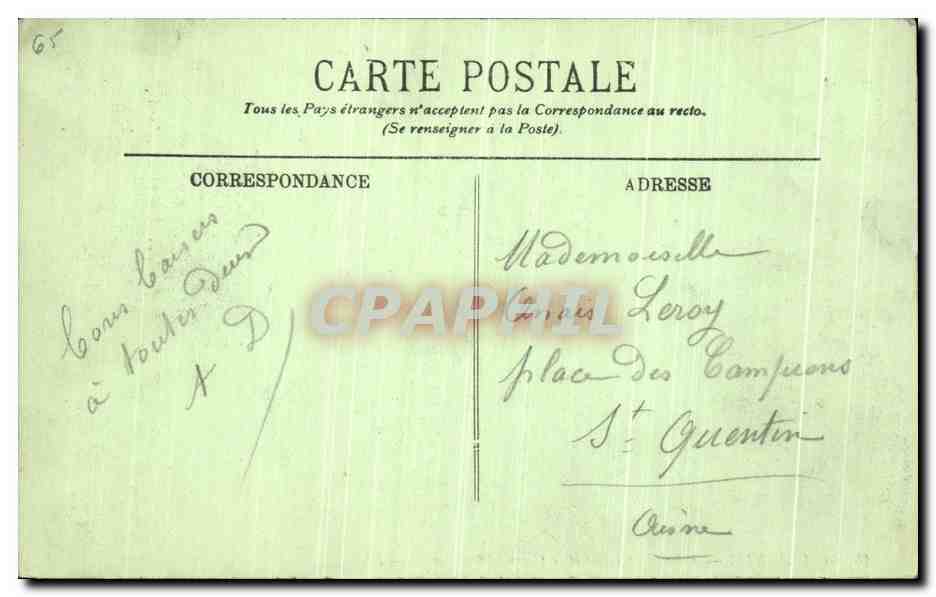 65
CARTE POSTALE
Tous les Pays étrangers n'acceptent pas la Correspondance au recto.
(Se renseigner à la Poste).
CORRESPONDANCE
ADRESSE
Bons baisers
à toutes deux
A D
Mademoiselle
Anaïs Leroy
place des Campions
St Quentin
Aisne
CPAPHIL